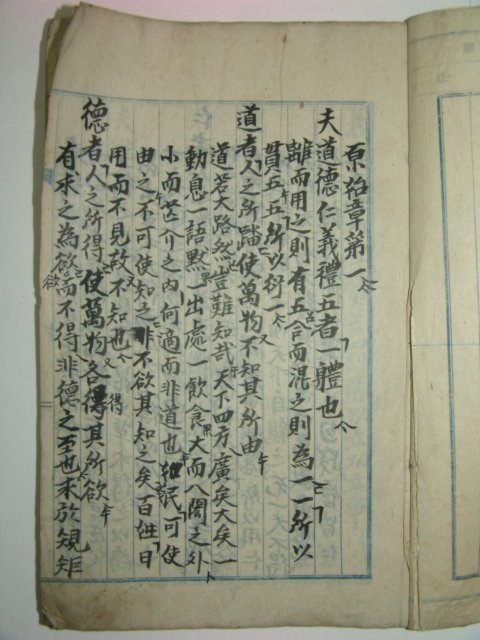 原始章第一
夫道德仁義禮五者一體也
離而用之則有五合而混之則為一一所以
貫五五所以衍一
道者人之所蹈使萬物不知其所由
道若大路然豈難知哉天下四方廣矣大矣一
動息一語默一出處一飲食大而八之外
小而芒介之內何適而非道也民可使
由之不可使知之非不欲其知之矣百姓日
用而不見故不知也
德者人之所得使萬物各得其所欲
有求之為欲而不得非德之至也求於規矩